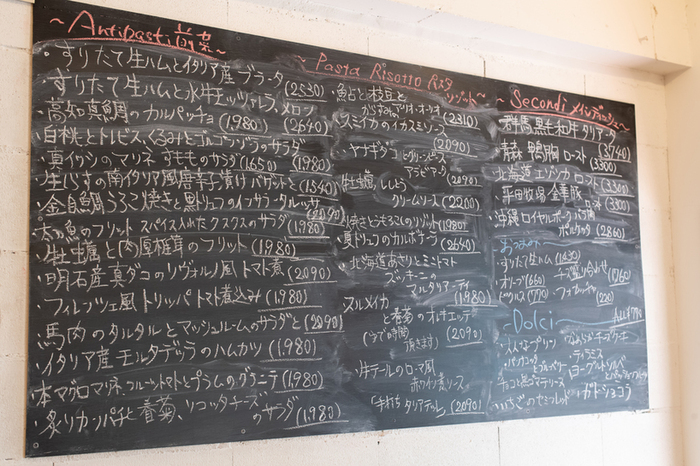 ~Antipasti 前菜~
・すりたて生ハムとイタリア産ブラータ (2530)
すりたて生ハムと水牛モッツァレラ、メロン (2640)
・高知真鯛のカルパッチョ (1,980)
・白桃とトレビス、くるみとゴルゴンゾーラのサラダ (1980)
・真イワシのマリネ すもものサラダ (1650)
・生しらすの南イタリア風唐辛子漬け バゲットと (1540)
・金目鯛うろこ焼きと黒トリュフのインサラータルッサ (2090)
・太刀魚のフリット スパイス入れたクスクスのサラダ (1980)
・牡蠣と肉厚椎茸のフリット (1980)
・明石産真ダコのリヴォルノ風トマト煮 (2090)
・フィレンツェ風トリッパトマト煮込み (1,980)
・馬肉のタルタルとマッシュルームのサラダと (2090)
・イタリア産モルタデッラのハムカツ (1,980)
・本マグロマリネ、フルーツトマトとプラムのグラニテ (1,980)
・炙りカンパチと春菊、リコッタチーズのサラダ (1,980)
~Pasta Risotto パスタ リゾット~
・魚占と枝豆と
からすみのアーリオ・オーリオ (2310)
スミイカのイカスミソース (2090)
・ヤナギダコ
アラビアータ (2090)
・牡蠣、ししとう
クリームソース (2200)
・焼きとうもろこしのリゾット (1980)
・夏トリュフのカルボナーラ (2640)
・北海道あさりとミニトマト
ズッキーニの
マルタリアーティ (1980)
ヌルメイカ
と春菊のオレキエッテ
(ゆで時間頂きます) (2090)
・牛テールのローマ風
赤ワイン煮ソース
「手打ちタリアテッレ」 (2090)
~Secondi メインディッシュ~
・群馬黒毛和牛タリアータ (3740)
・青森 鴨胸ロースト (3300)
・北海道エゾシカロースト (3300)
・平田牧場金華豚 (3300)
・沖縄ロイヤルポーク
ポルケッタ (2860)
~おつまみ~
・すりたて生ハム (1430)
・オリーブ (660) ・チーズ盛り合わせ (1760)
・ピクルス (770) ・フォカッチャ (220)
~Dolci~
・プリン
・ティラミス
・いちごのセミフレッド ・ガトショコラ